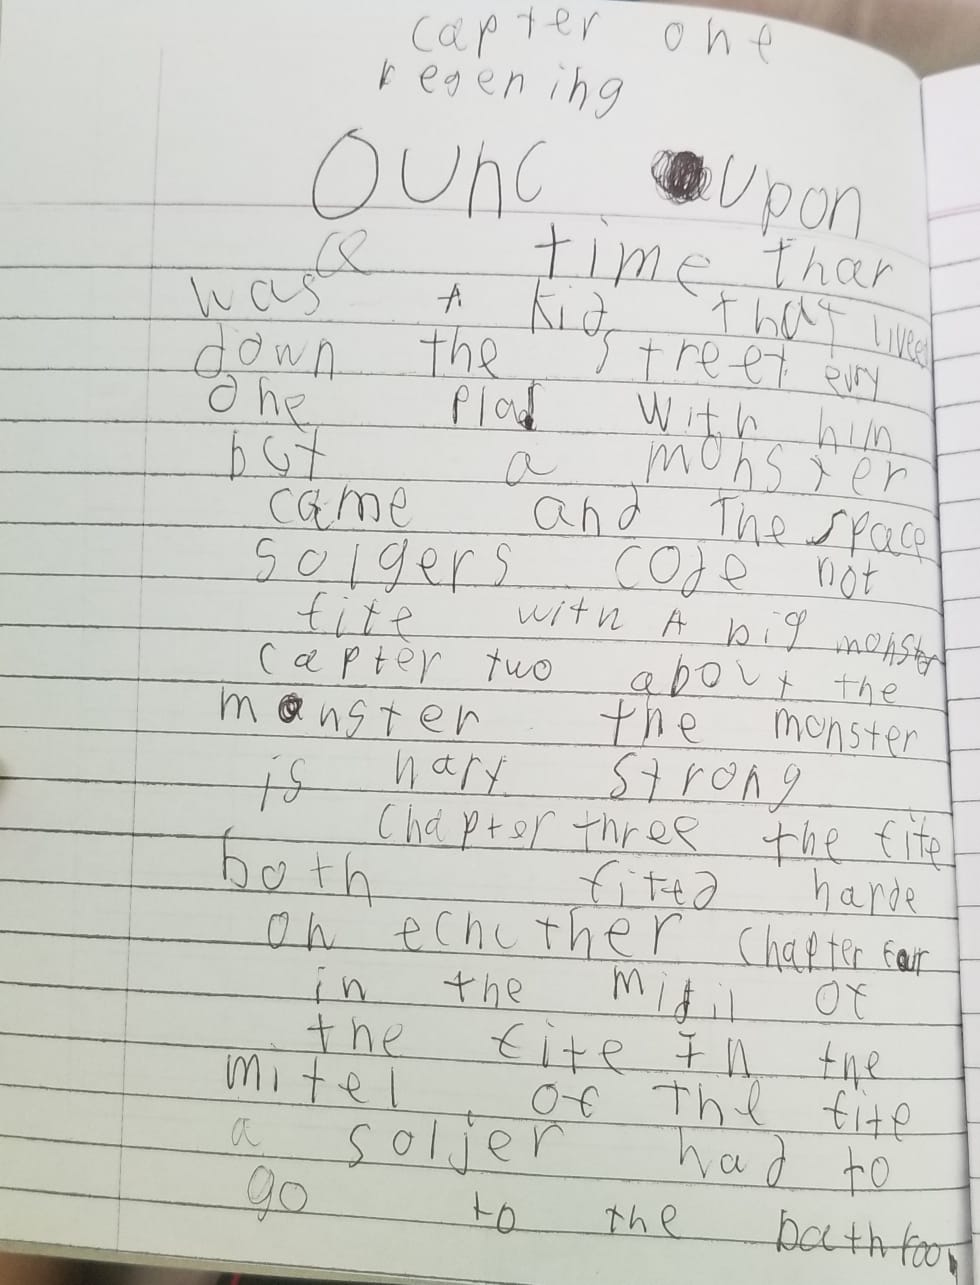 capter one
begening
Ounc upon
a time thar
was A kid that lived
down the street evry
one plad with him
but a monster
came and The space
solgers code not
fite with A big monster
capter two about the
monster the monster
is hary strong
Chapter three the fite
both fited harde
on echuther Chapter four
in the midil of
the fite In the
mitel of The fite
a soljer had to
go to the bathroo